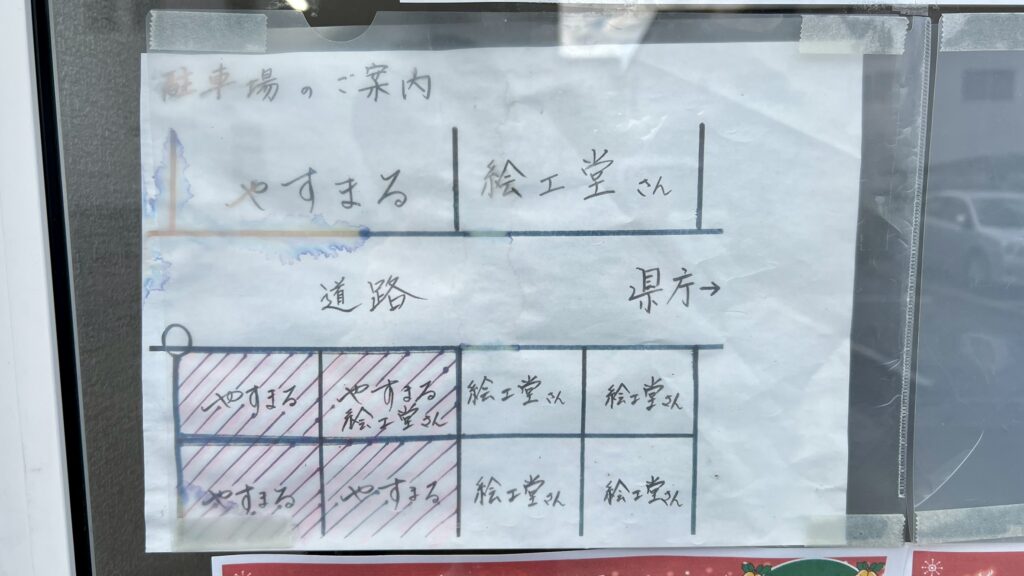 駐車場のご案内
やすまる
絵工堂さん
道路
県庁→
やすまる
やすまる
絵工堂さん
絵工堂さん
絵工堂さん
やすまる
やすまる
絵工堂さん
絵工堂さん